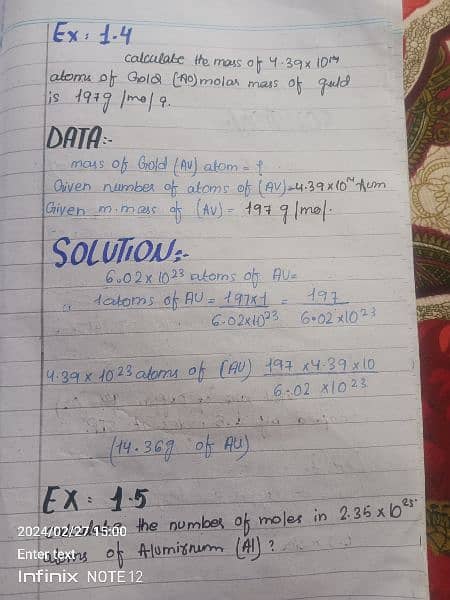 Ex: 1.4
calculate the mass of 4.39x10
atoms of Gold (AU) molar mass of guld
is 197g/mol?.
DATA:-
mass of Gold (AU) atom = ?
Given number of atoms of (AU)=4.39x10
Given m.mass of (AU) = 197 g/mol.
SOLUTION:-
6.02x10²³ atoms of AU=
1 atoms of AU = 197x1 = 197
6.02x10²³ 6.02x10²³
4.39 x 10²³ atoms of (AU) 197 x4.39 x10
6.02 x10²³
(14.36g of AU)
EX: 1.5
the number of moles in 2.35 x10²³
atoms of Alumirnum (Al)?
2024/02/27 15:00
Enter text
Infinix NOTE 12